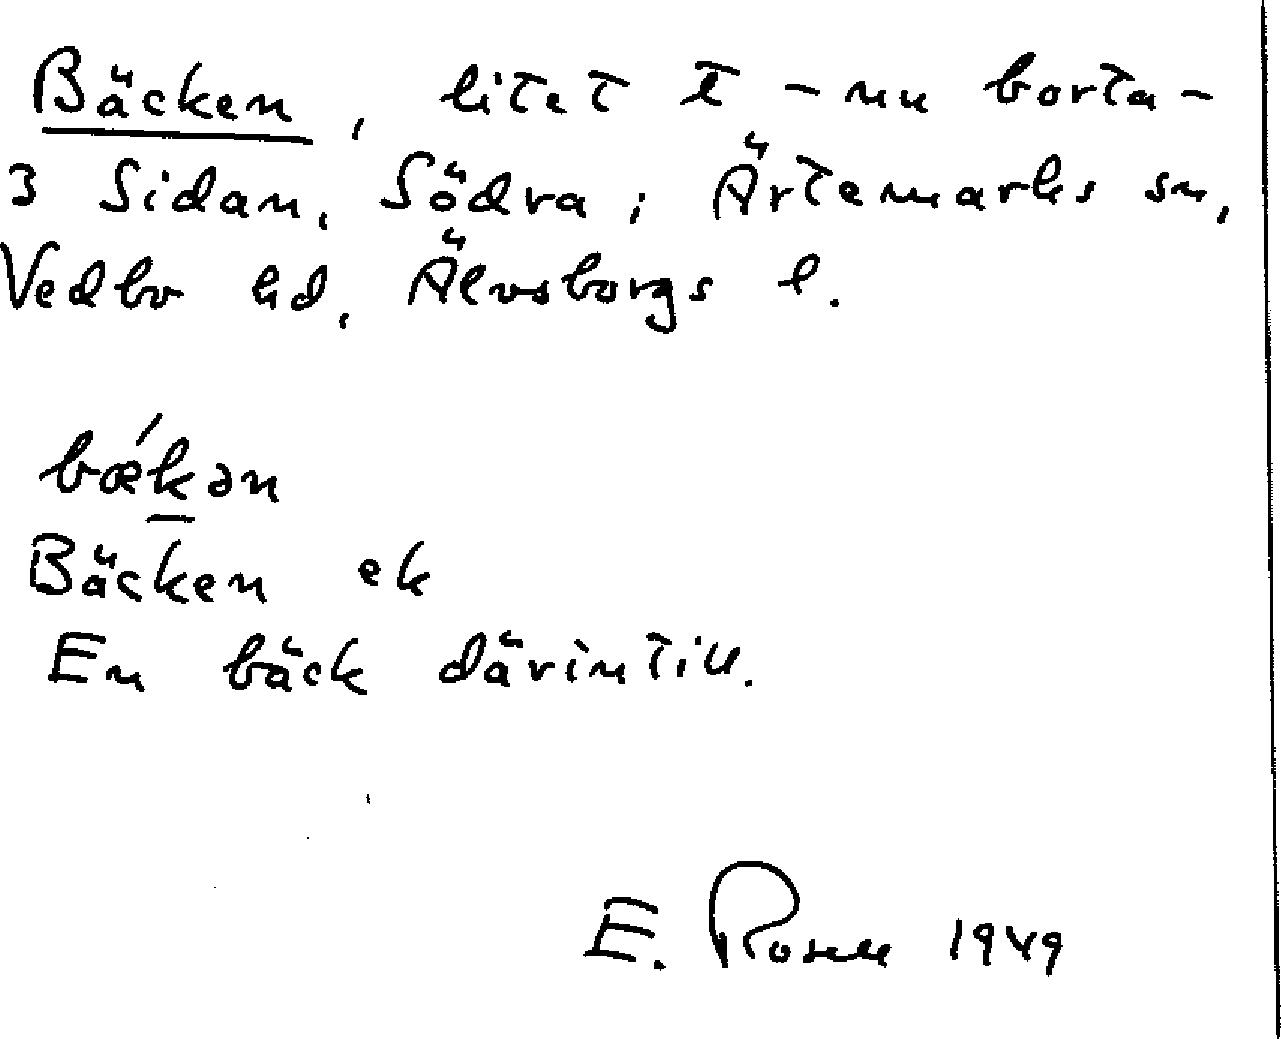 Bäcken, litet t̄ - nu borta -
3 Sidan, Södra, Ärtemarks sn,
Vedbo hd, Älvsborgs l.
bǽk̲ən
Bäcken ek
En bäck därintill.
E. Rosell 1949